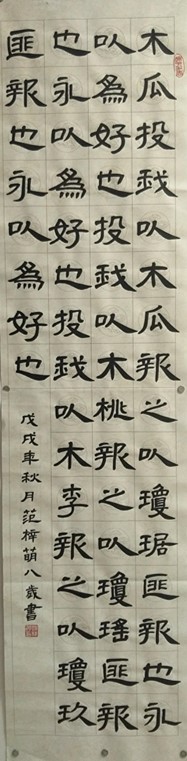 木瓜投我以木瓜報之以瓊琚匪報也永
以爲好也投我以木桃報之以瓊瑤匪報
也永以爲好也投我以木李報之以瓊玖
匪報也永以爲好也
戊戌年秋月范梓萌八歲書